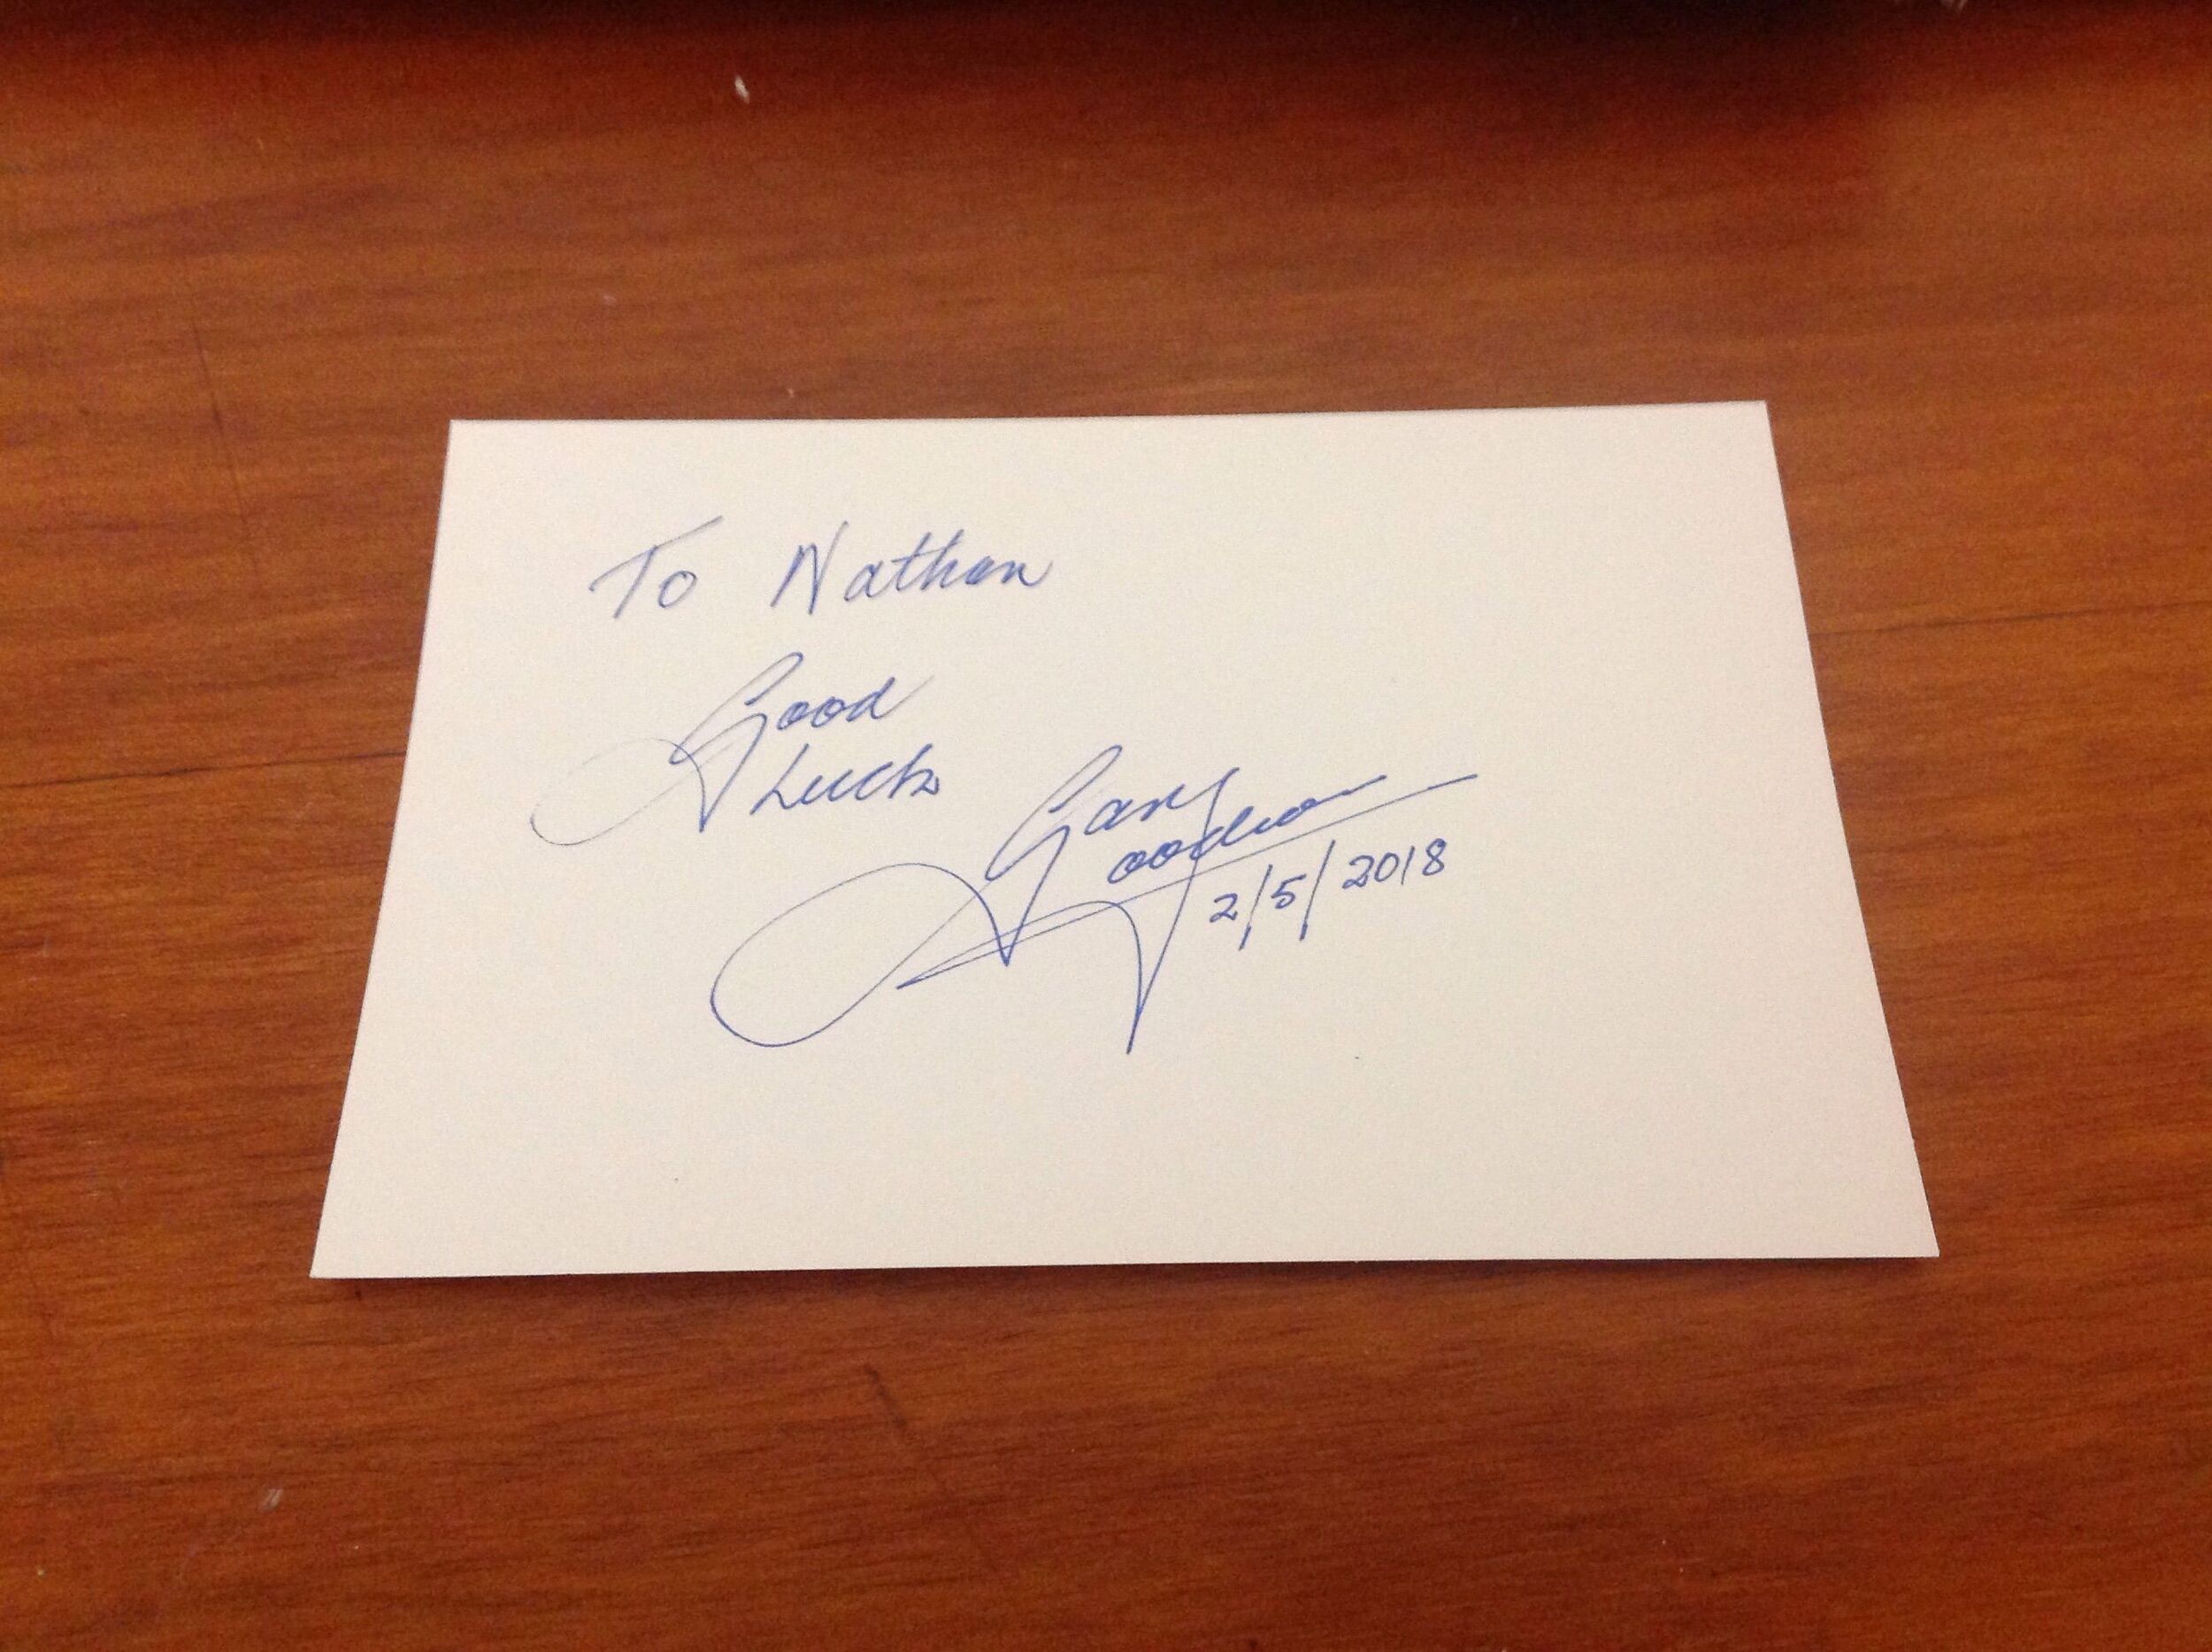 To Nathan
Good
Luck
Gary
2/5/2018